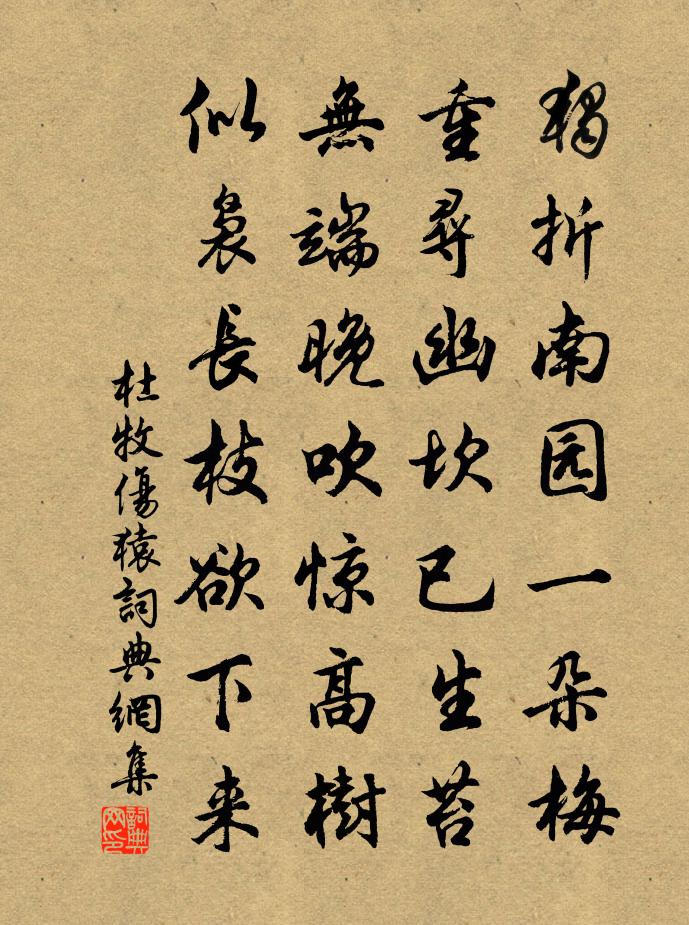 獨折南园一朵梅
重尋幽坎已生苔
無端晚吹惊高樹
似裊長枝欲下来
杜牧傷猿詞典網集
詞典
网印